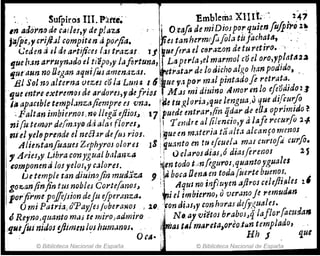 Suspiros III. Parte.
en adorno de cales, y de plaza
jaspe, y cristal compiten à porfia,
Ceden à el de artifices las trazas 15
que han arruynado el tiẽpo, y la fortuna,
que aun no llegan aqui sus amenazas.
El Sol no alterna vezes cõ la Luna 16
que entre extremos de ardores, y de frios
la apacible templanza siempre es vna.
Faltan imbiernos, no llegã estios, 17
ni su temor desmaya dà alas flores,
ni el yelo prende el nectar de sus rios.
Alientan suaues Zephyros olores 18
y Aries, y Libra con ygual balanza
componen à los yelos, y calores.
De temple tan diuino sin mudãza 9
gozan sin fin tus nobles Cortesanos,
por firme possession de su esperanza.
O mi Patria, ò Payses soberanos 20
ô Reyno, quanto mas te miro, admiro
que sus nidos estimen los humanos.
Oca-
Emblema XIIII. 247
O casa de mi Dios por quien suspiro 21
es tan hermosa sola tu fachata,
que fera el corazon de tu retiro.
La perla, el marmol cõ el oro, y plata 22
retratar de lo dicho algo han podido,
que ya por mal pintado se retrata.
Mas mi diuino Amor en lo escõdido 23
de tu gloria, que lengua, ò que discurso
puede entrar, sin q̃dar de ella oprimido?
Tendre al silencio, y à la fe recurso 24
que en materia tã alta alcanço menos
quanto en tu escuela mas cursosa curso.
O claros dias, ô dias serenos 25
en todo tan seguros, quanto yguales
à boca llena en todo, suerte buenos.
Aqui no influyen astros celestiales 26
ni el imbierno, ò verano se remudan
con dias, y con horas desyguales.
No ay viẽtos brabos, q̃ la flor sacudan
mas tal mareta, orèo tan templado,
Hh 3 que